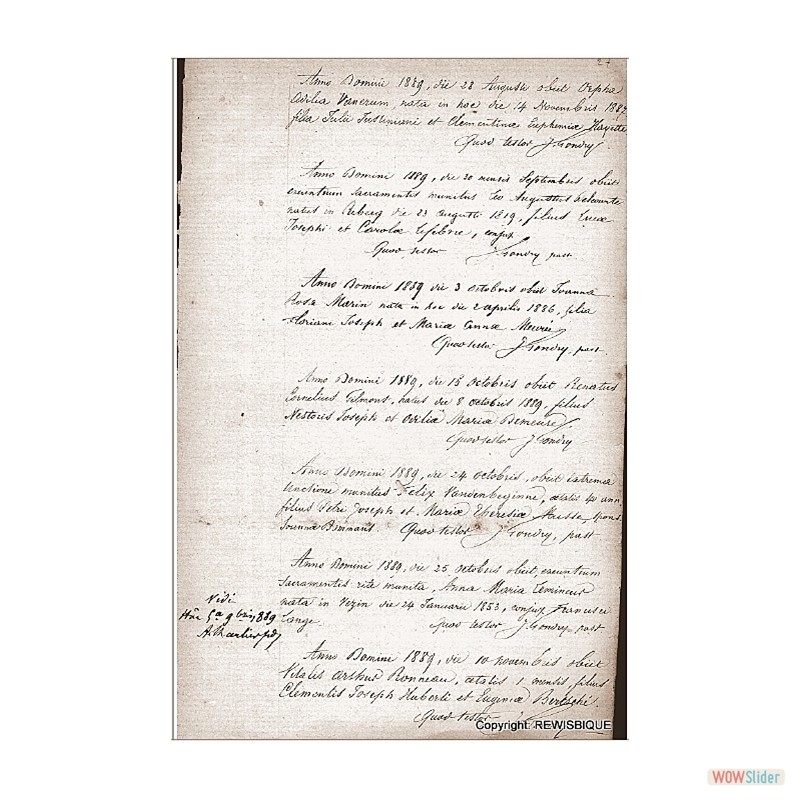 27
Anno Domini 1889, die 28 Augusti obiit Orpha
Odilia Vanerum, nata in hoc die 14 Novembris 1887
filia Julii Justiniani et Clementinæ Euphemiæ Hayette
Quod testor J Gondry
Anno Domini 1889, die 20 mensis Septembris obiit
exeuntium sacramentis munitus Leo Augustus Delcourte
natus in die 23 augusti 1819, filius Lucæ
Josephi et Carolæ Lefebvre, conjux
Quod testor J Gondry past
Anno Domini 1889 die 3 octobris obiit Joanna
Rosa Marin nata in hoc die 2 aprilis 1886, filia
Floriani Joseph et Mariæ Annæ Meurée
Quod testor J Gondry, past.
Anno Domini 1889, die 15 octobris obiit Renatus
Cornelius Filmont, natus die 8 octobris 1889, filius
Nestoris Joseph et Odiliæ Maria Demeure.
Quod testor J Gondry
Anno Domini 1889, die 24 octobris, obiit extrema
unctione munitus Felix Vandenbeginne, ætatis 40 ann.
filius Petri Joseph et Mariæ Theresiæ
Joanna Quod testor J Gondry, past
Anno Domini 1889, die 25 octobris obiit, exeuntium
Sacramentis rite munita, Anna Maria Lemineur
nata in Vezin die 24 Januarii 1853, conjux Francisci
Lange. Quod testor J Gondry, past
Vidi
Hâc 5a 9bris 1889
A. Charlier
Anno Domini 1889, die 10 novembris obiit
Vitalis Arthur Ronneau, ætatis 1 mensis, filius
Clementis Joseph Huberti et Eugeniæ Bertsché.
Quod testor
Copyright: REWISBIQUE
WOWSlider